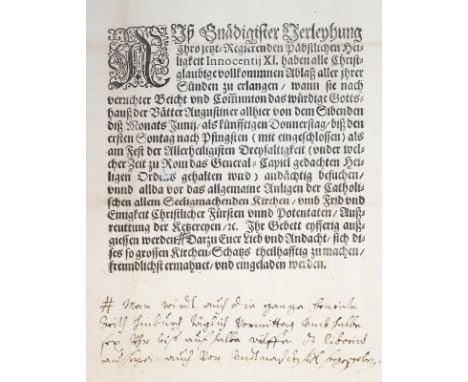 AUß Gnädigister Verleyhung
Ihro jetzt-Regierenden Päbstlichen Hei-
ligkeit Innocentij XI. haben alle Christ-
glaubige vollkommnen Ablaß aller jhrer
Sünden zu erlangen / wann sie nach
verrichter Beicht vnd Com̃union das würdige Gotts-
hauß der Vätter Augustiner allhier von dem Sibenden
diß Monats Junij / als künfftigen Donnerstag / biß den
ersten Sontag nach Pfingsten (mit eingeschlossen) als
am Fest der Allerheiligsten Dreyfaltigkeit (vnder wel-
cher Zeit zu Rom das General-Capitl gedachten Hei-
ligen Ordens gehalten wird) andächtig besuchen /
vnnd allda vor das allgemaine Anligen der Catholi-
schen allein Seeligmachenden Kirchen / vmb Frid vnd
Einigkeit Christlicher Fürsten vnnd Potentaten / Auß-
reuttung der Ketzereyen / ꝛc. Ihr Gebett eyfferig auß-
giessen werden # Darzu Euer Lieb vnd Andacht / sich di-
ses so grossen Kirchen-Schatz theilhafftig zu machen /
freundlichst ermahnet / vnd eingeladen werden.
# Man wirdt auch die ganze
täglich Vormittag vmb halbe
Uhr biß auf halbe
auch vor